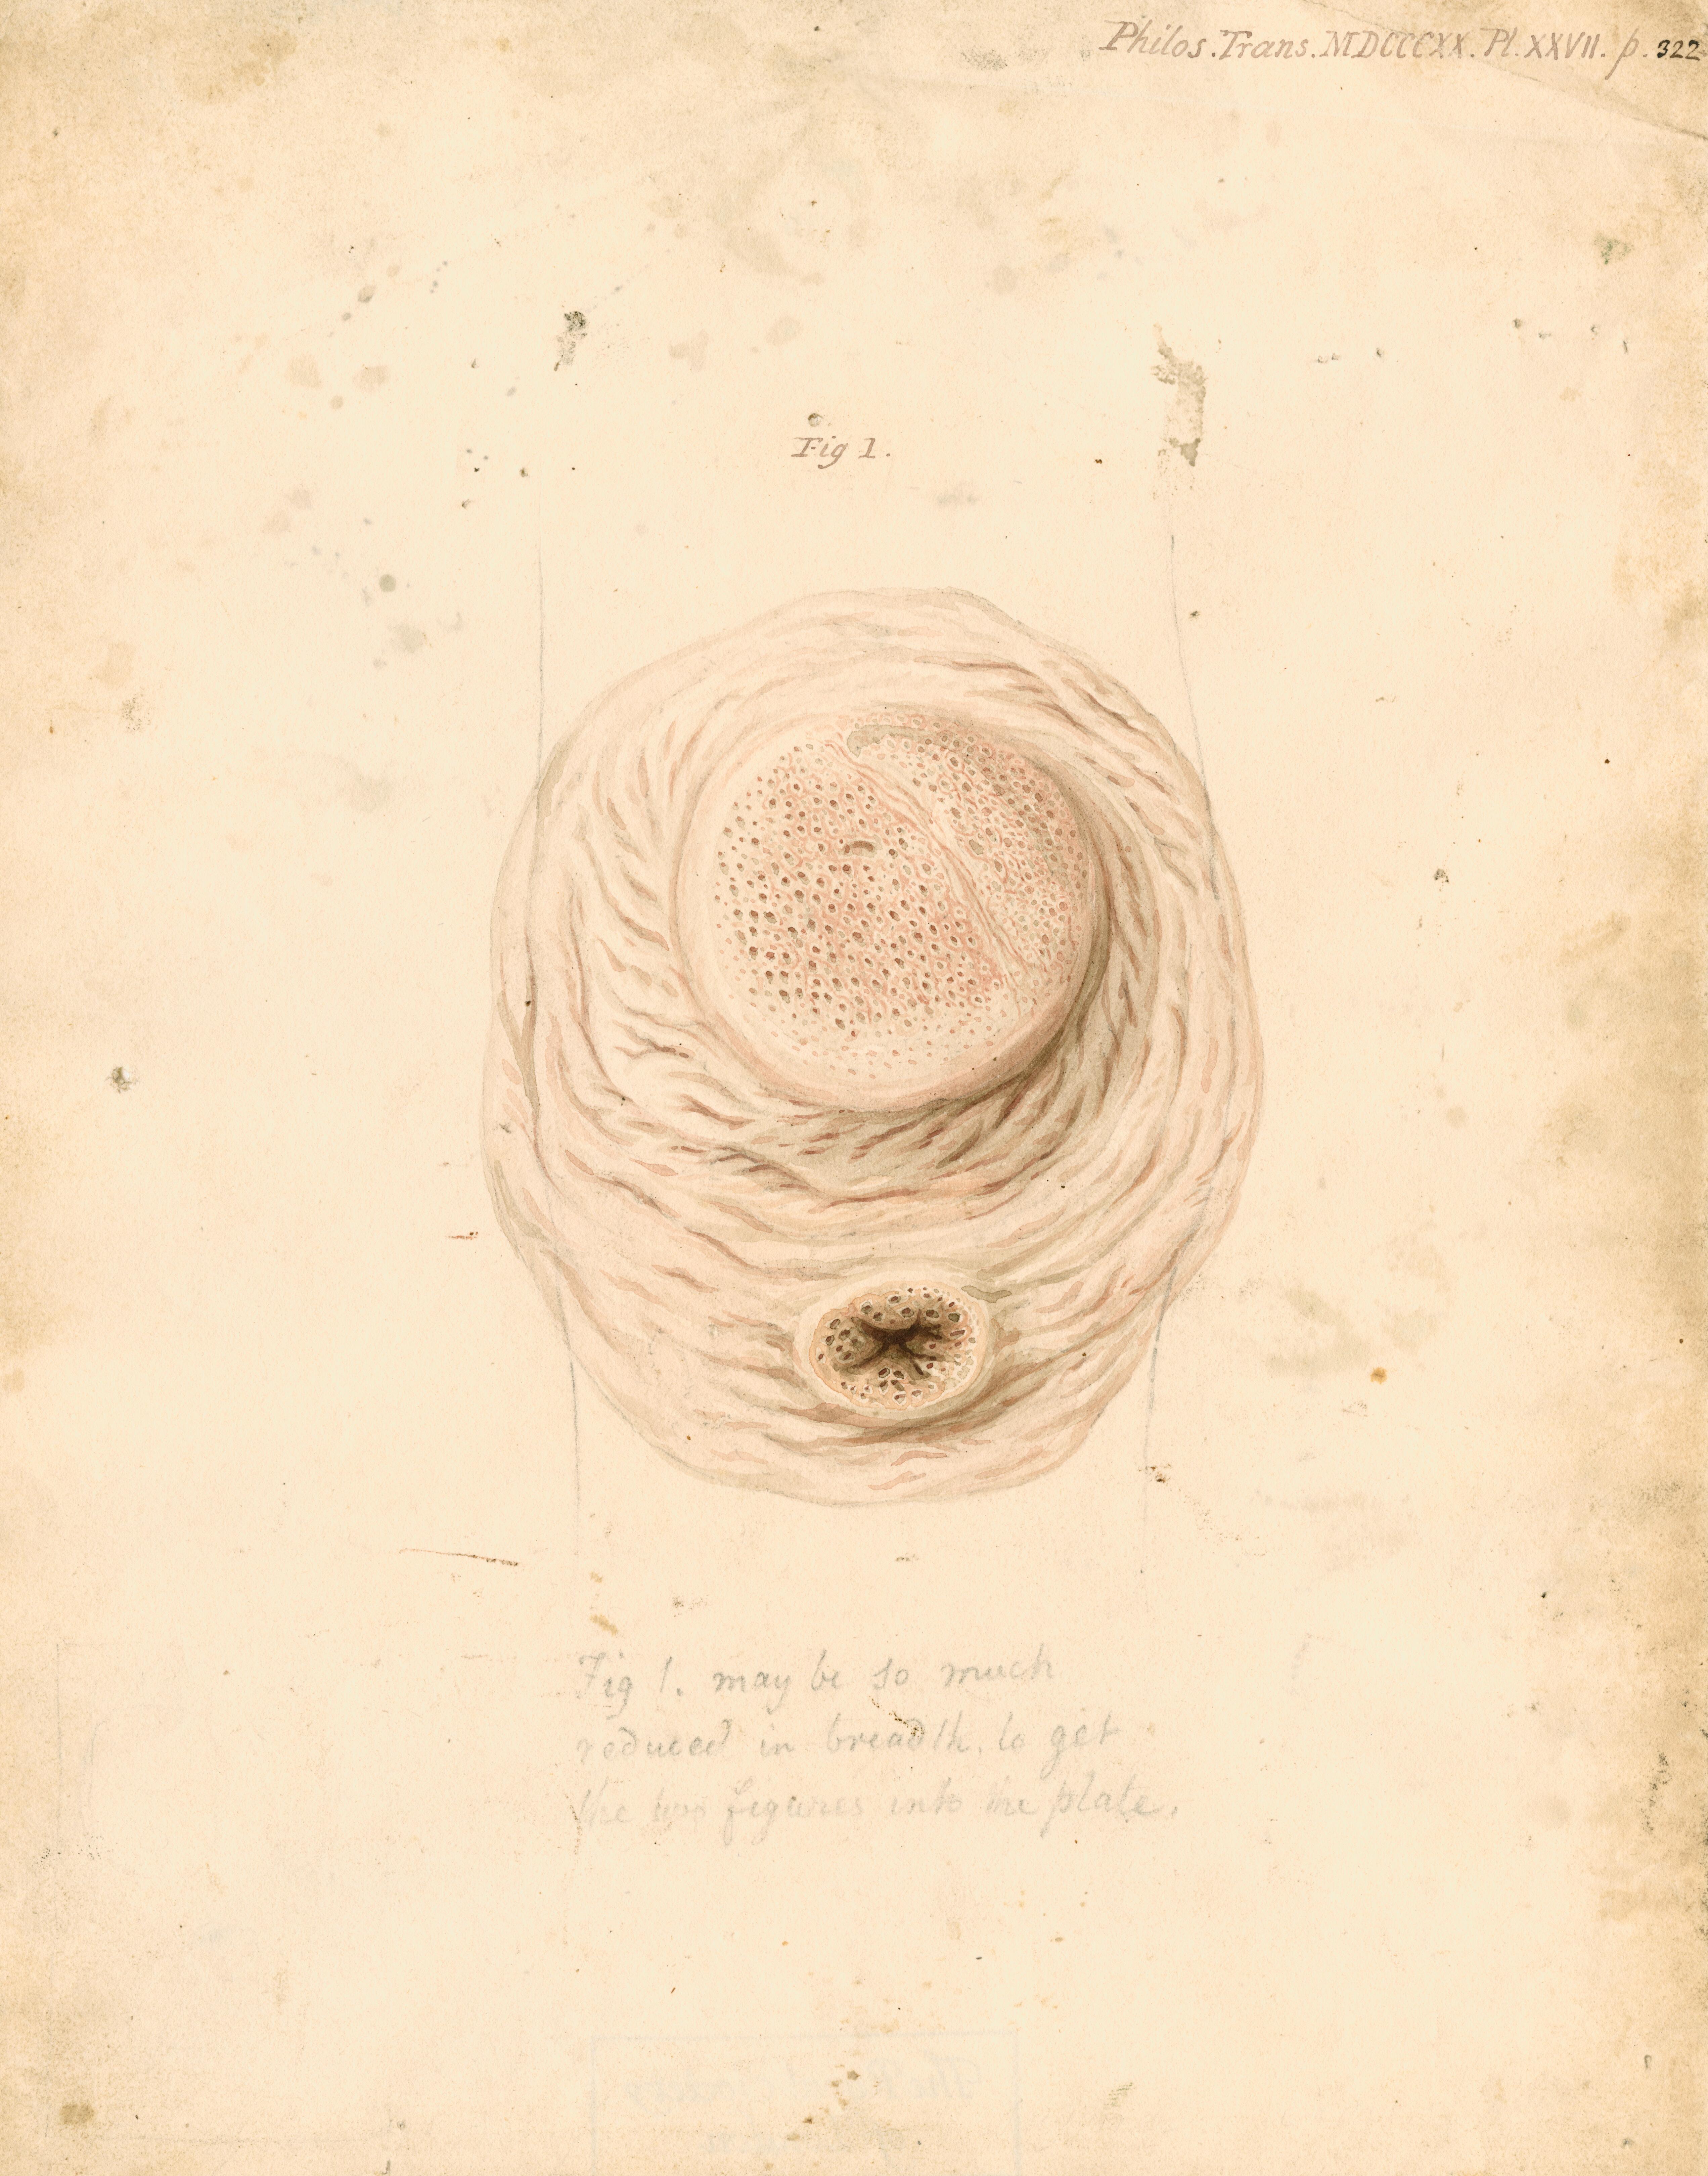 Philos. Trans. MDCCCXX. Pl. XXVII. p. 322
Fig 1.
Fig 1. may be so much
reduced in breadth, to get
the two figures into the plate.